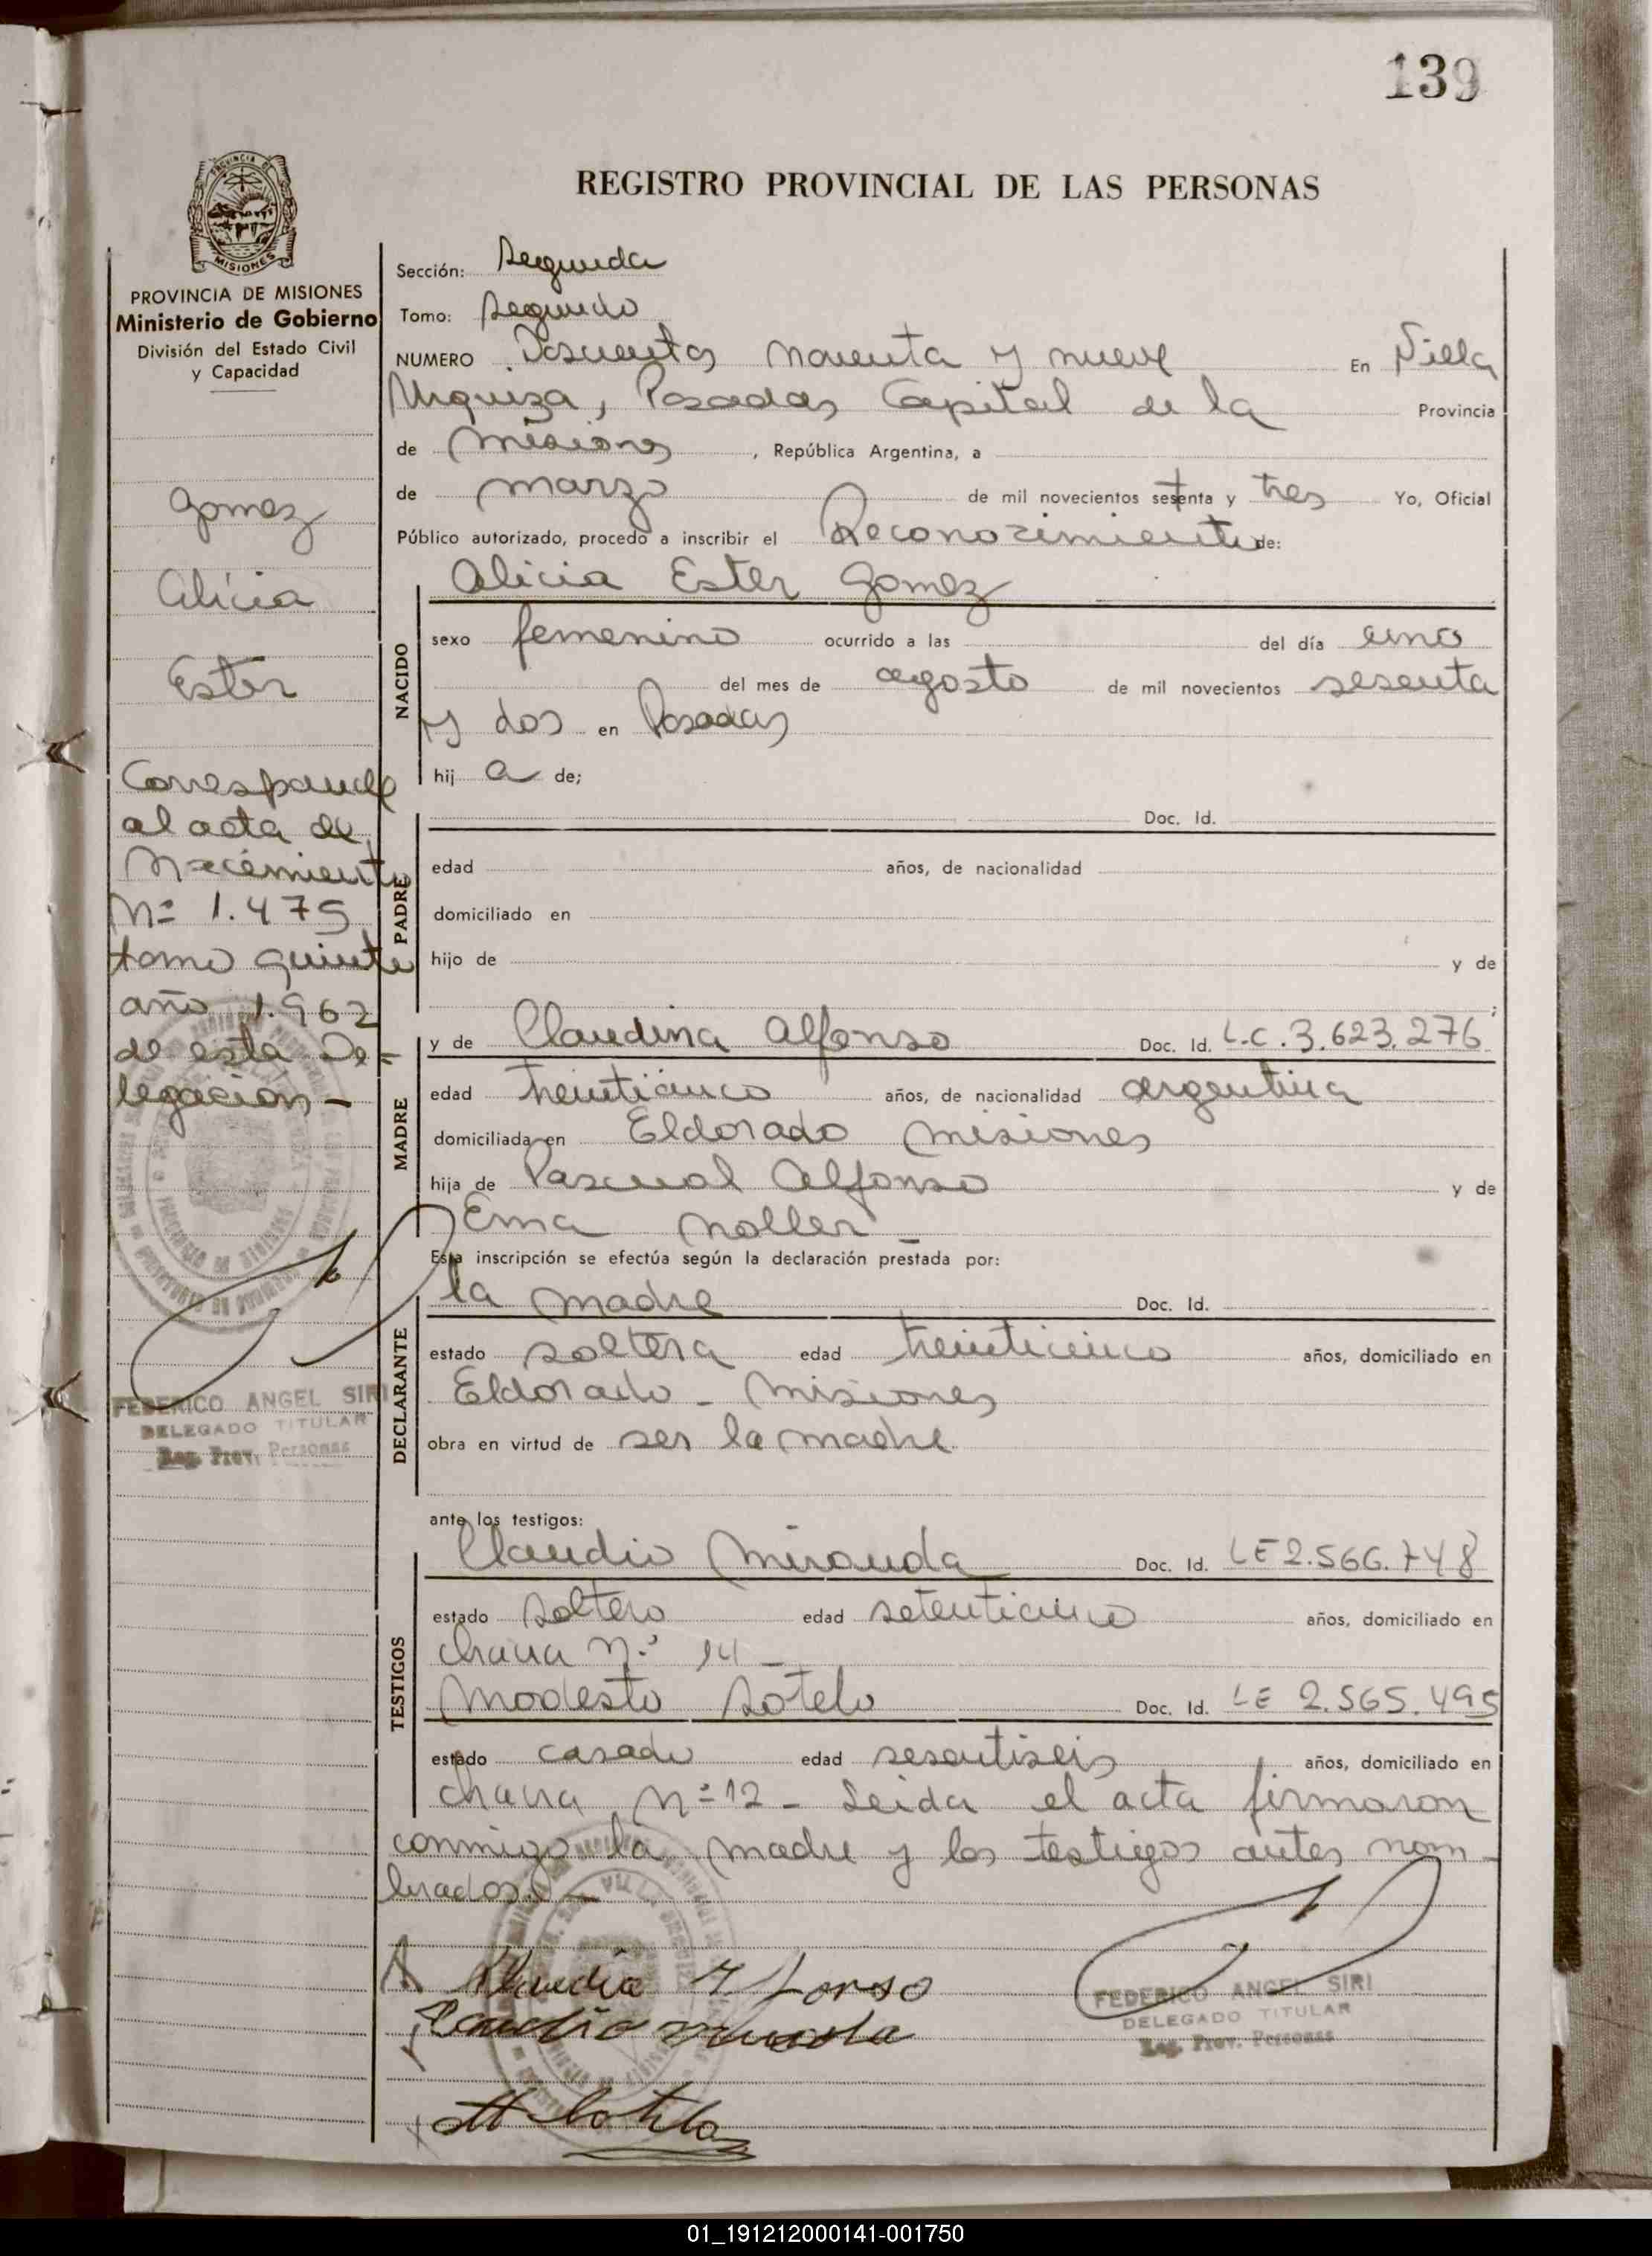 139
REGISTRO PROVINCIAL DE LAS PERSONAS
PROVINCIA DE MISIONES
Ministerio de Gobierno
División del Estado Civil
y Capacidad
Gomez
Alicia
Ester
Corresponde
al acta de
Nacimiento
Nº 1.475
tomo quinto
año 1.962
de esta De=
legación -
FEDERICO ANGEL SIRI
DELEGADO TITULAR
Reg. Prov. Personas
Sección: Segunda
Tomo: Segundo
NUMERO Doscientos noventa y nueve En Villa
Urquiza, Posadas Capital de la Provincia
de Misiones, República Argentina, a
de marzo de mil novecientos setenta y tres Yo, Oficial
Público autorizado, procedo a inscribir el Reconocimiento de:
NACIDO
Alicia Ester Gomez
sexo femenino ocurrido a las del día uno
del mes de agosto de mil novecientos sesenta
y dos en Posadas
hij a de;
PADRE
Doc. Id.
edad años, de nacionalidad
domiciliado en
hijo de y de
;
MADRE
y de Claudina Alfonso Doc. Id. L.C. 3.623.276
edad treinticinco años, de nacionalidad argentina
domiciliada en Eldorado Misiones
hija de Pascual Alfonso y de
Ema Noller -
Esta inscripción se efectúa según la declaración prestada por:
DECLARANTE
la madre Doc. Id.
estado soltera edad treinticinco años, domiciliado en
Eldorado - Misiones
obra en virtud de ser la madre
ante los testigos:
TESTIGOS
Claudio Miranda Doc. Id. LE 2.566.748
estado soltero edad setenticinco años, domiciliado en
chacra Nº 14 -
Modesto Sotelo Doc. Id. LE 2.565.495
estado casado edad sesentiseis años, domiciliado en
chacra Nº 12 - Leida el acta firmaron
conmigo la madre y los testigos antes nom-
brados. -
FEDERICO ANGEL SIRI
DELEGADO TITULAR
Reg. Prov. Personas
01_191212000141-001750